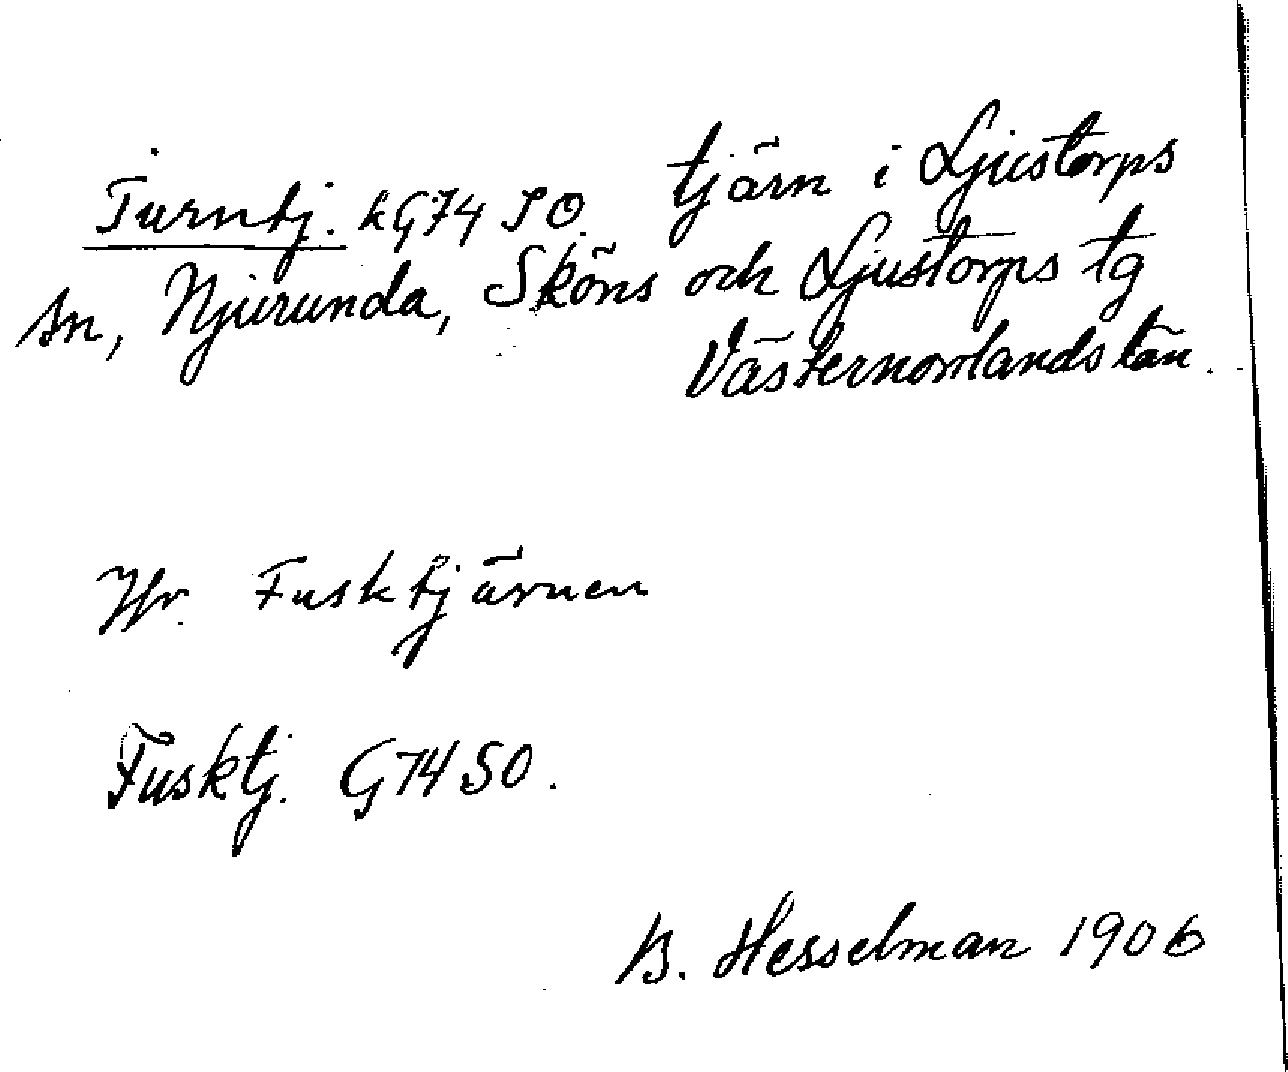 Turntj. kG74 SO. tjärn i Ljustorps
sn, Njurunda, Sköns och Ljustorps tg
Västernorrlands län.
Hr. Fusktjärnen
Fusktj. G74 SO.
B. Hesselman 1906